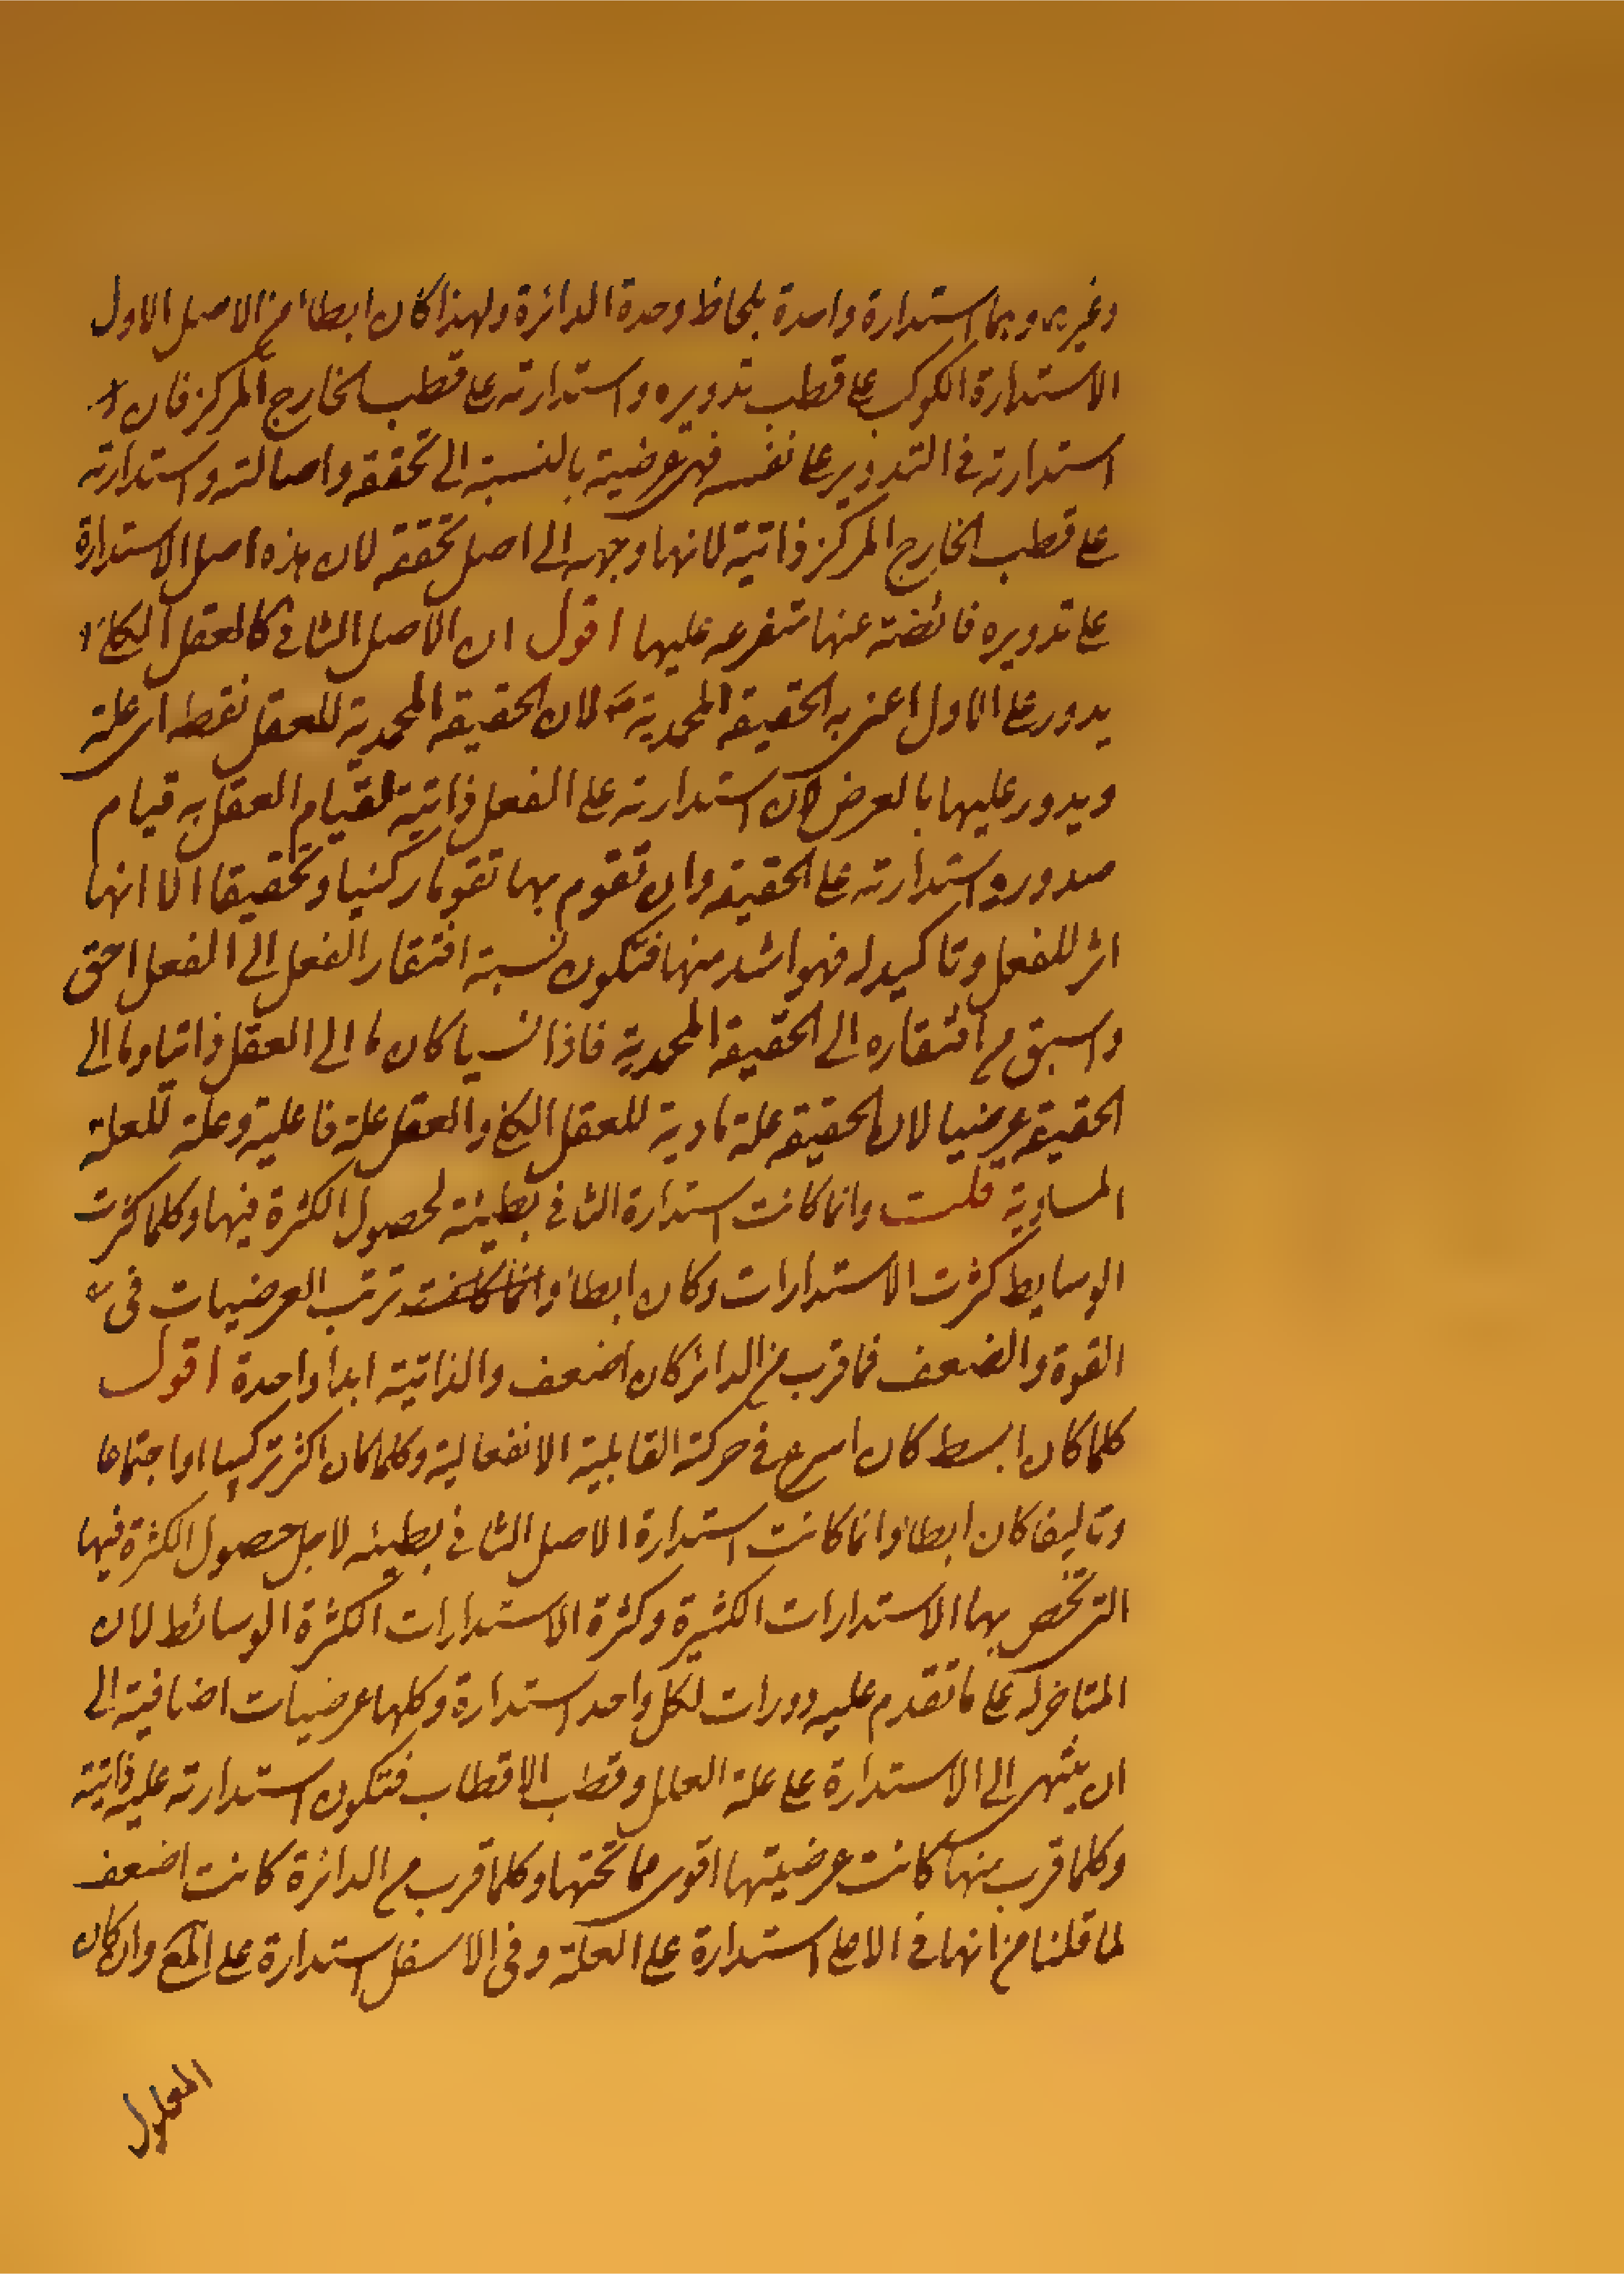 وغيره وبما استدارة واحدة بلحاظ وحدة الدائرة ولهذا كان ابطاء من الاصل الاول
الاستدارة الكوكب على قطب تدويره واستدارته على قطب الخارج المركز فان
استدارته فى التدوير على نفسه فهى عرضية بالنسبة الى تحققه واصالته واستدارته
على قطب الخارج المركز ذاتية لانها وجهه الى اصل تحققه لان هذه اصل الاستدارة
على تدويره فائضة عنها متفرعه عليها اقول ان الاصل الثانى كالعقل الكلى
يدور على الاول اعنى به الحقيقة المحمدية ص لان الحقيقة المحمدية للعقل نقطه اى علة
ويدور عليها بالعرض لان استدارته على الفعل ذاتية لقيام العقل به قيام
صدور واستدارته على الحقيقه وان تقوم بها تقوما ركنيا وتحقيقا الا انها
اثر للفعل وتاكيد له فهو اشد منها فتكون نسبة افتقار الفعل الى الفعل احق
واسبق من افتقاره الى الحقيقة المحمدية فاذا نسبا كان ما الى العقل ذاتيا وما الى
الحقيقه عرضيا لان الحقيقه علة مادية للعقل الكلى والعقل علة فاعلية وعلة للعلة
المساوية قلت وانما كانت استدارة الثانى بطيئة لحصول الكثرة فيها وكلما كثرت
الوسايط كثرت الاستدارات وكان ابطاء وانما كانت ترتب العرضيات فى
القوة والضعف فما قرب من الدائر كان اضعف والذاتية ابدا واحدة اقول
كلما كان ابسط كان اسرع فى حركة القابلية الانفعالية وكلما كان اكثر تركيبا او اجتماعا
وتاليفا كان ابطاء وانما كانت استدارة الاصل الثانى بطيئه لاجل حصول الكثرة فيها
التى تخص بها الاستدارات الكثيرة وكثرة الاستدارات لكثرة الوسائط لان
المتاخر له على ما تقدم عليه دورات لكل واحد استدارة وكلها عرضيات اضافية الى
ان ينتهى الى الاستدارة على علة العلل وقطب الاقطاب فتكون استدارته عليه ذاتية
وكلما قرب منها كانت عرضيتها اقوى مما تحتها وكلما قرب من الدائرة كانت اضعف
لما قلنا من انها فى الاعلى استدارة على العلة وفى الاسفل استدارة على المع وان كان
المعلول